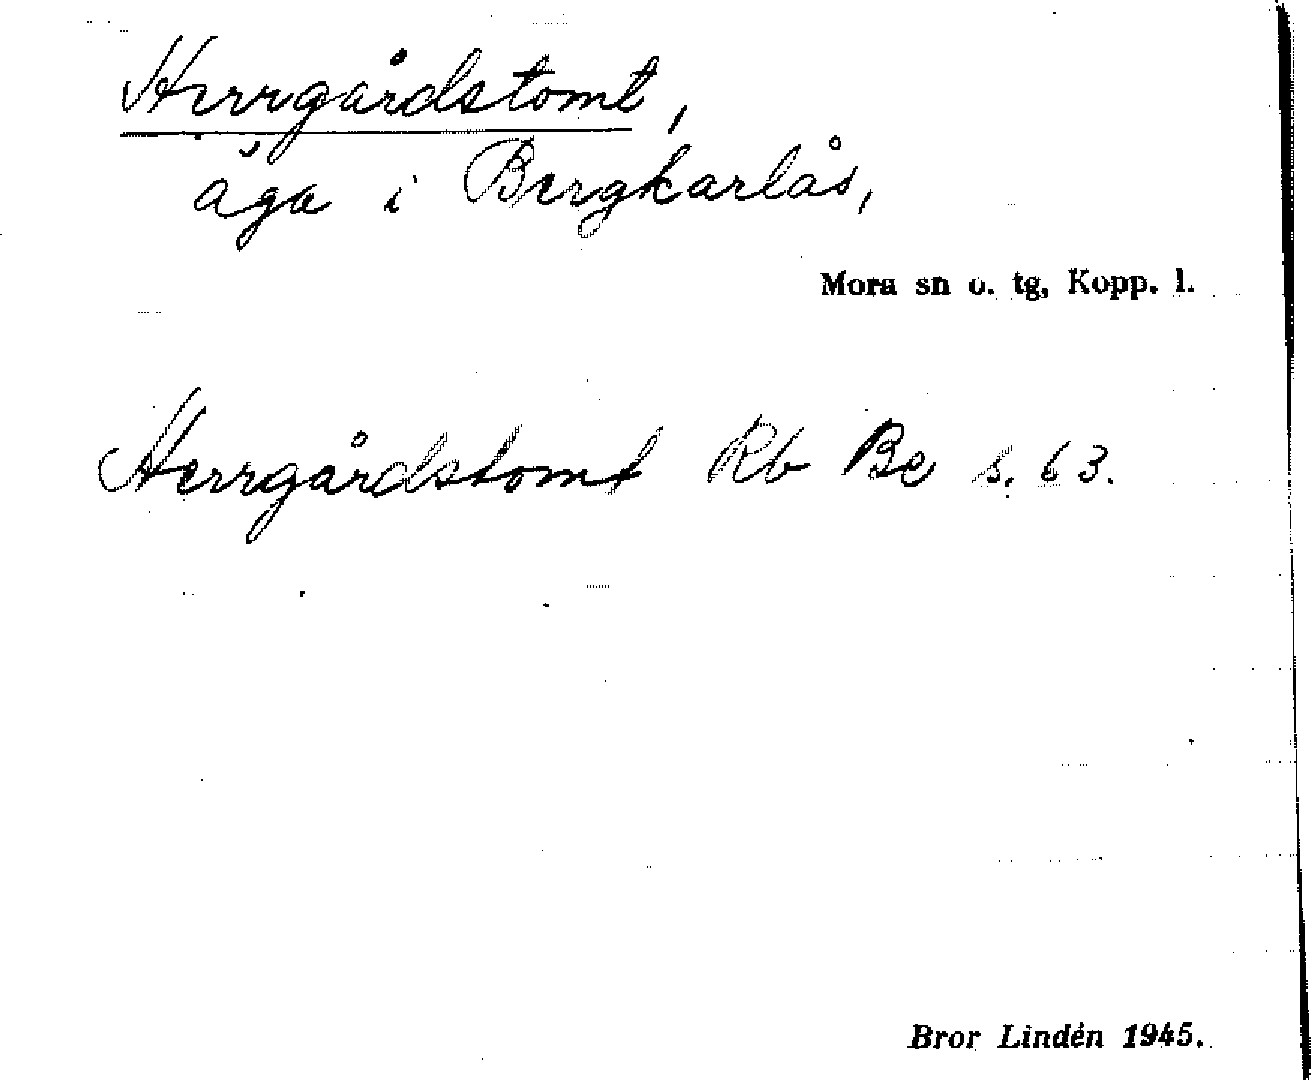 Herrgårdstomt,
äga i Bergkarlås,
Mora sn o. tg, Kopp. l.
Herrgårdstomt Rb Be s. 63.
Bror Lindén 1945.